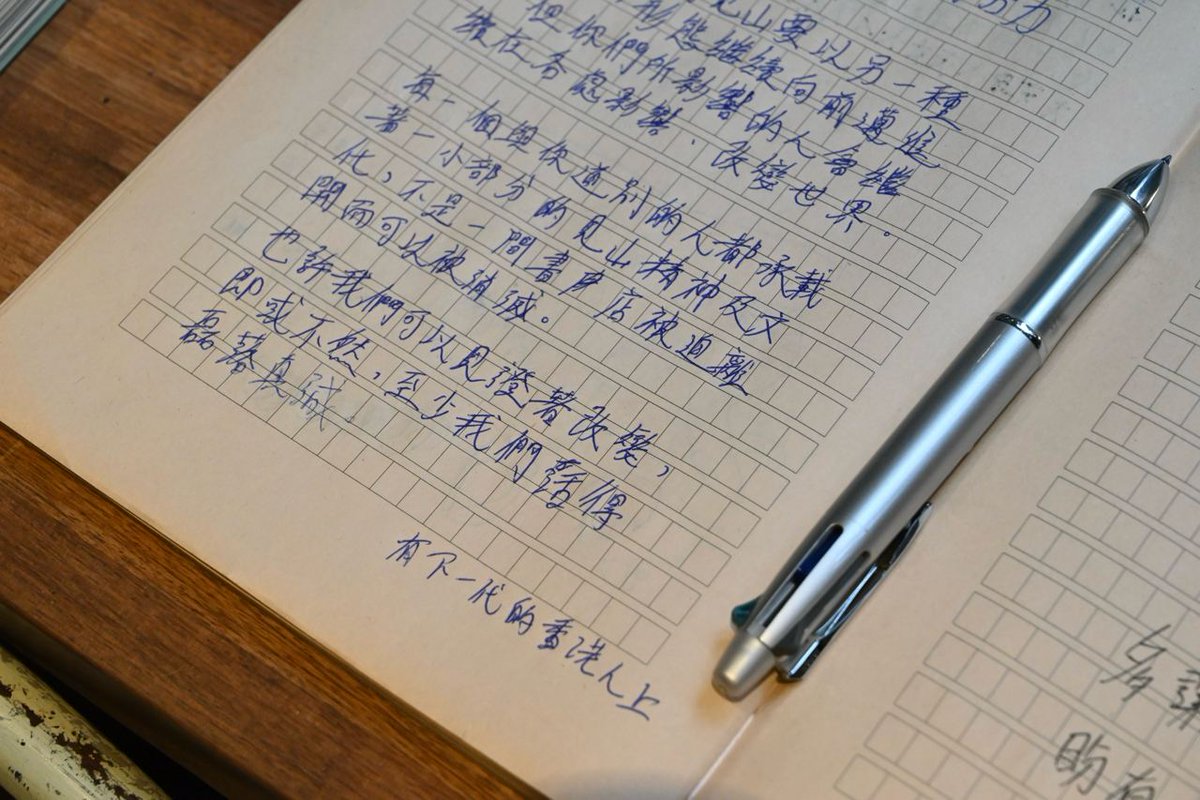 力
見山要以另一種
形態繼續向前邁進
但你們所影響的人會繼
續在各處影響、改變世界。
有一個與你道別的人都承載
著一小部分的見山精神及文
化，不是一間書店被迫離
開而可以被消滅。
也許我們可以見證著改變，
即或不然，至少我們得
磊落真誠。
有下一代的香港人上
多謝
有